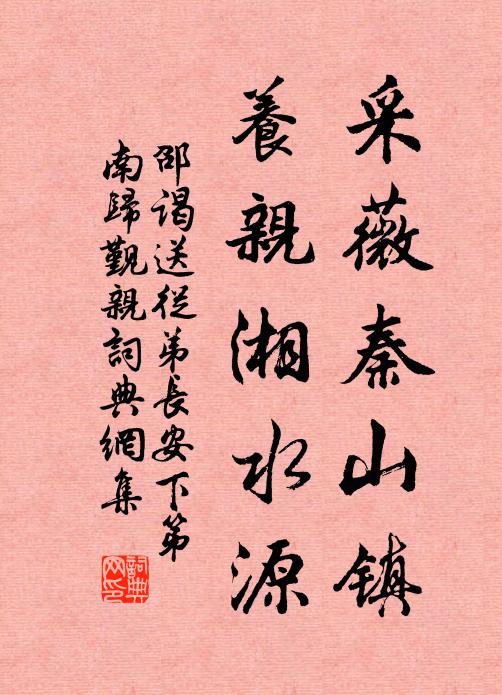 采薇秦山镇
養親湘水源
邵谒送從弟長安下第
南歸覲親詞典網集
詞典网印